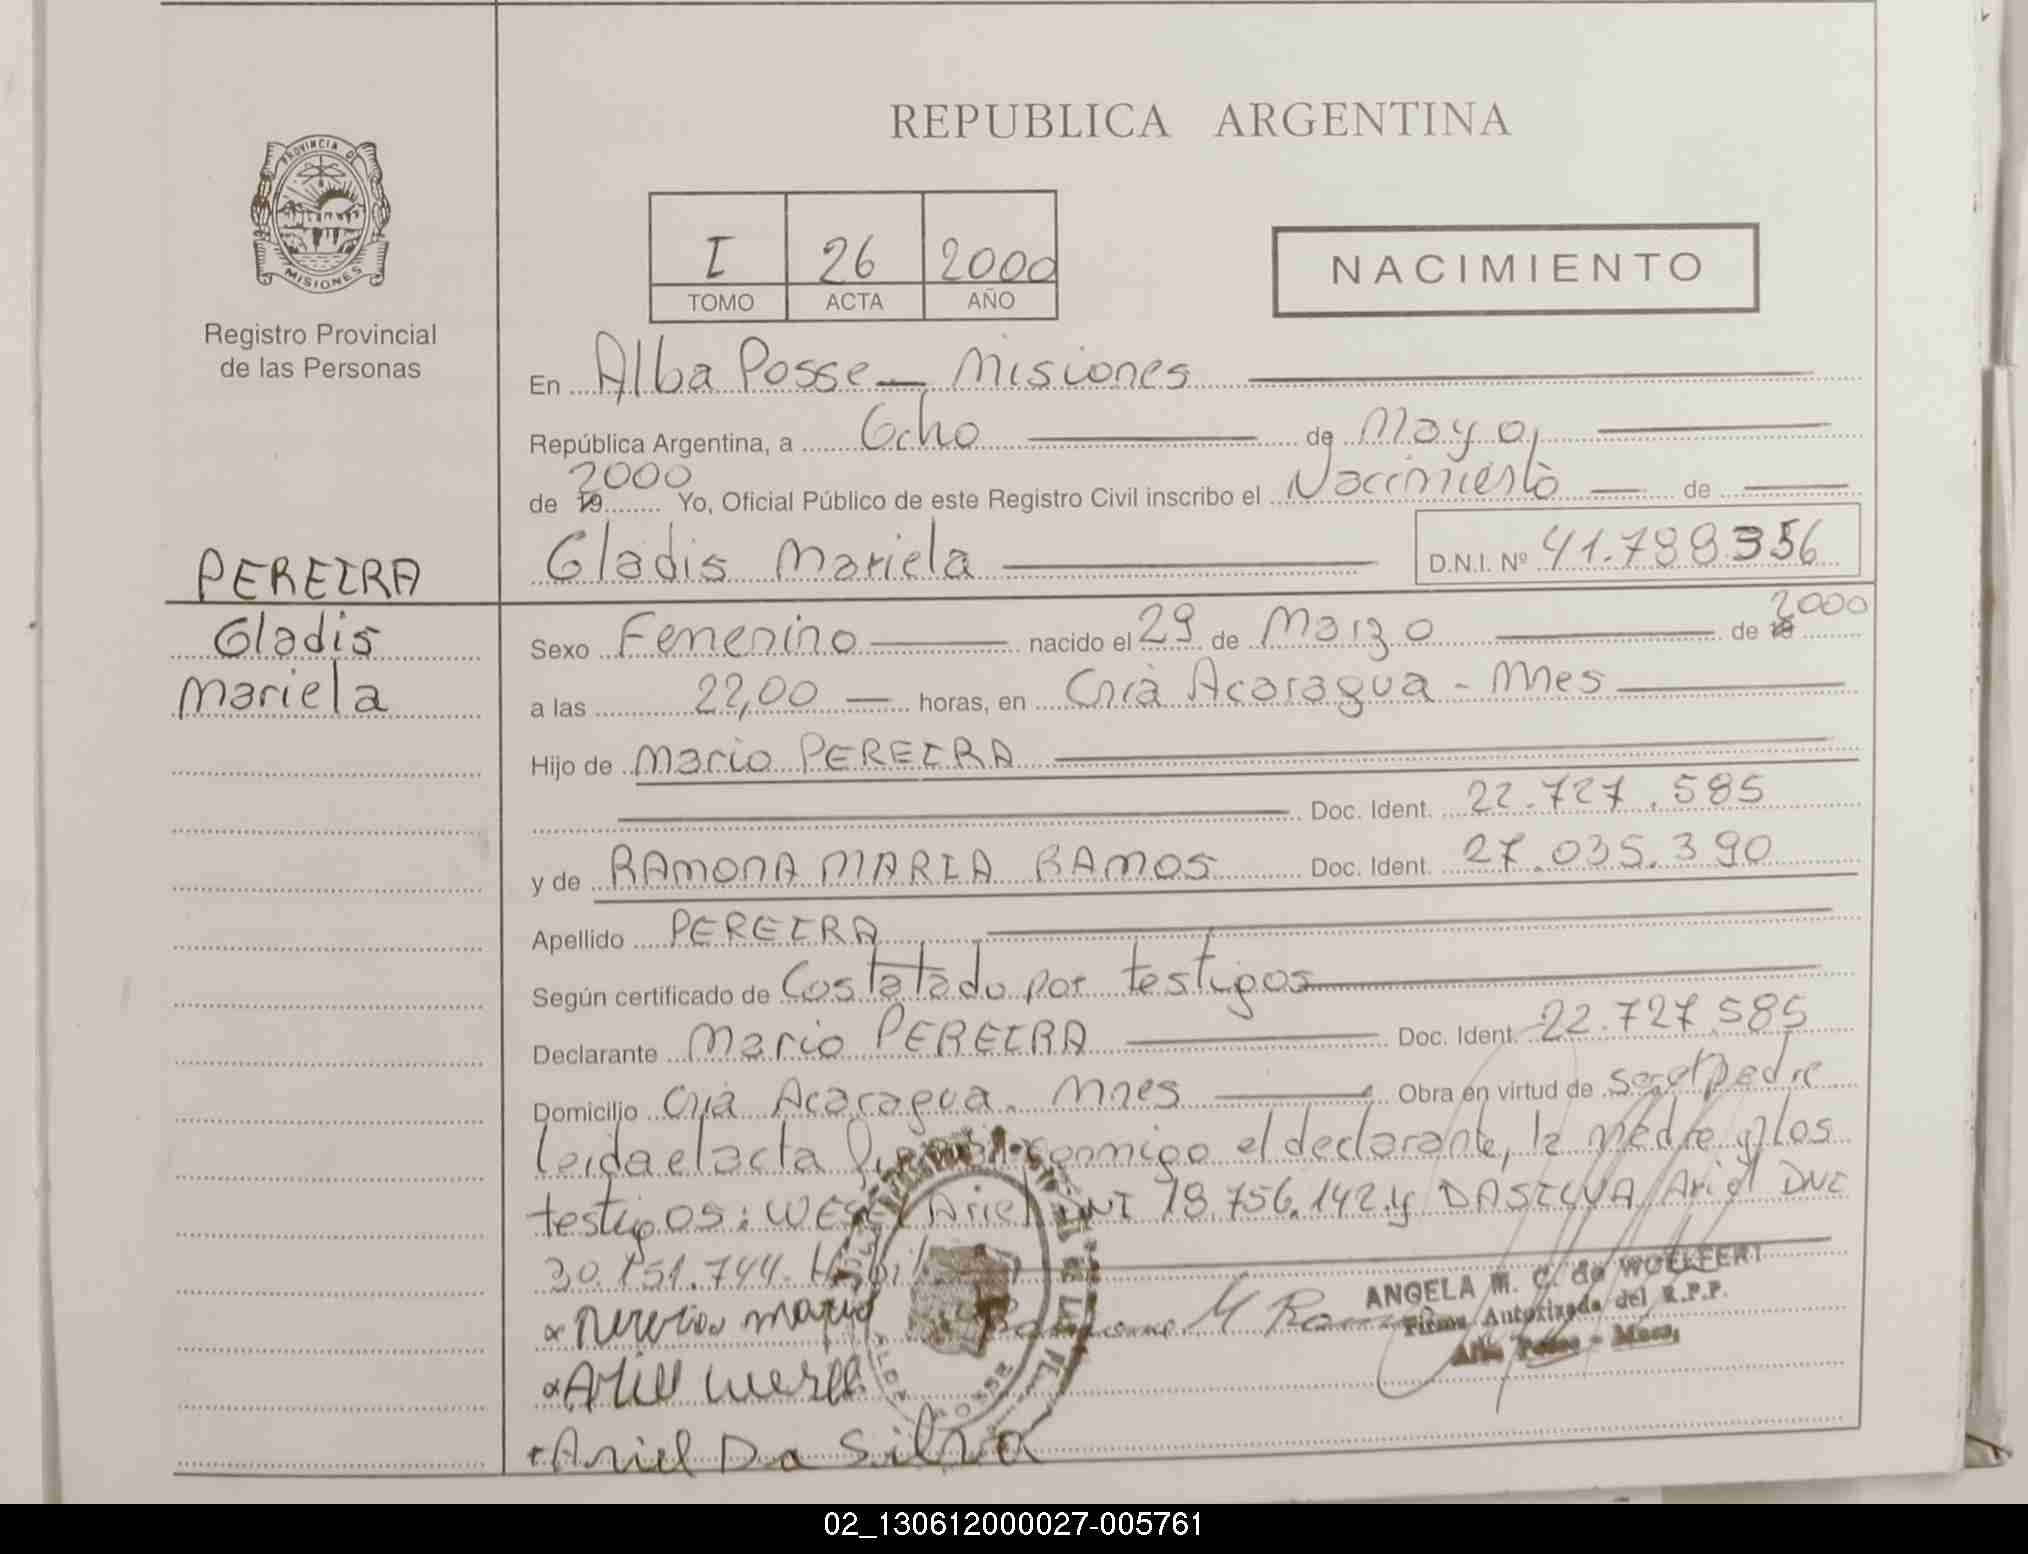 REPUBLICA ARGENTINA
PROVINCIA DE
MISIONES
Registro Provincial
de las Personas
I 26 2000
TOMO ACTA AÑO
NACIMIENTO
En Alba Posse - Misiones
República Argentina, a Ocho de Mayo,
de 2000 19 Yo, Oficial Público de este Registro Civil inscribo el Nacimiento de
PEREIRA
Gladis
Mariela
Gladis Mariela D.N.I. Nº 41.788.356
Sexo Femenino nacido el 29 de Marzo de 2000
a las 22,00 horas, en Cnià Acaragua - Mnes
Hijo de Mario PEREIRA
Doc. Ident. 22.727.585
y de RAMONA MARIA RAMOS Doc. Ident. 27.035.390
Apellido PEREIRA
Según certificado de Costatado por testigos
Declarante Mario PEREIRA Doc. Ident. 22.727.585
Domicilio Cnià Acaragua. Mnes Obra en virtud de ser el padre
Leida el acta conmigo el declarante, la Madre y los
testigos: Ariel DNI 18.756.142 y DA SILVA Ariel DNI
30.151.744.
Pereira mario
M Ramo
ANGELA M. C. de WOELFERT
Firma Autorizada del R.P.P.
Alba Posse - Mnes,
POSSE
Ariel
Ariel Da Silva
02_130612000027-005761